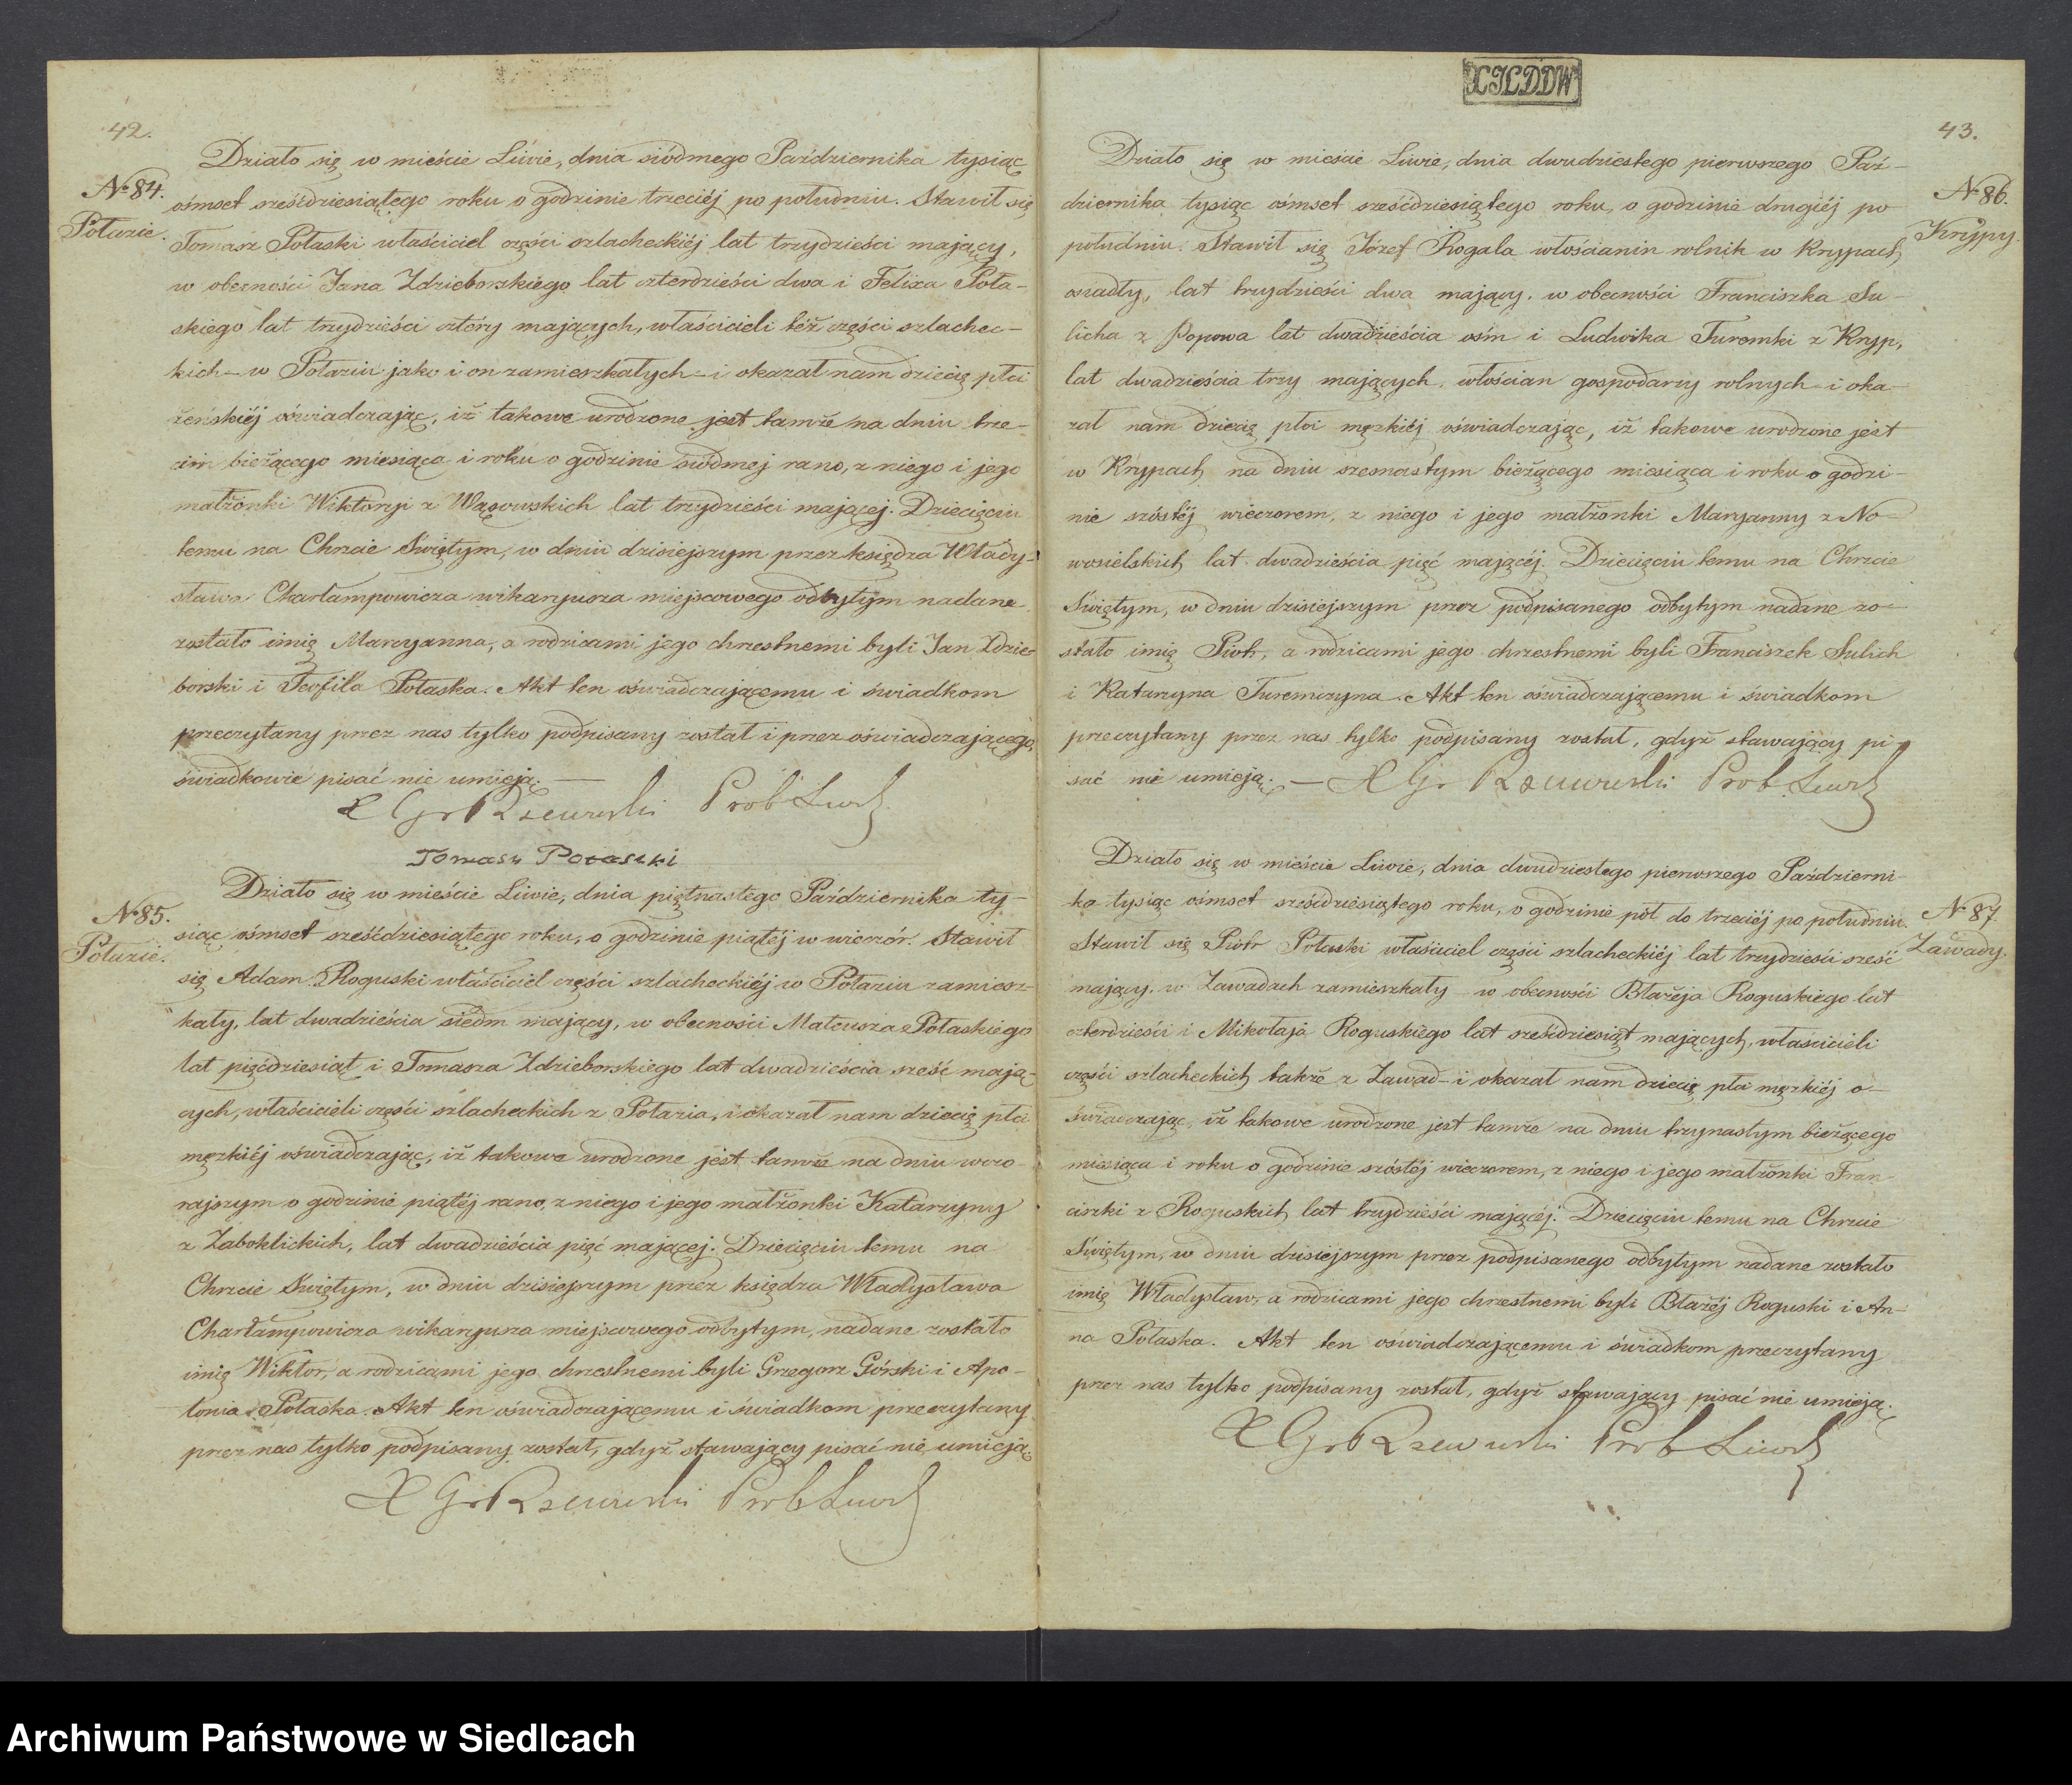 42.
N. 84.
Połazie.
Działo się w mieście Liwie, dnia siódmego Października tysiąc
ośmset sześćdziesiątego roku o godzinie trzeciéj po południu. Stawił się
Tomasz Połaski właściciel części szlacheckiéj lat trzydzieści mający,
w obecności Jana Zdzieborskiego lat czterdzieści dwa i Felixa Poła-
skiego lat trzydzieści cztéry mających, właścicieli téż części szlachec-
kich - w Połaziu jako i on zamieszkałych - i okazał nam dziecię płci
żeńskiéj oświadczając, iż takowe urodzone jest tamże na dniu trze-
cim bieżącego miesiąca i roku o godzinie siódmej rano, z niego i jego
małżonki Wiktoryi z Wąsowskich lat trzydzieści mającej. Dziecięciu
temu na Chrzcie Świętym, w dniu dzisiejszym przez księdza Włady-
sława Charłampowicza wikaryusza miejscowego odbytym nadane
zostało imię Maryanna, a rodzicami jego chrzestnemi byli Jan Zdzie-
borski i Teofila Połaska. Akt ten oświadczającemu i świadkom
przeczytany przez nas tylko podpisany został i przez oświadczającego,
świadkowie pisać nie umieją. —
X Gr Rzewuski Prob Liwski
Tomasz Połaski
N. 85.
Połazie.
Działo się w mieście Liwie, dnia piętnastego Października ty-
siąc ośmset sześćdziesiątego roku, o godzinie piątéj w wieczór. Stawił
się Adam Roguski właściciel części szlacheckiéj w Połaziu zamiesz-
kały, lat dwadzieścia siedm mający, w obecności Mateusza Połaskiego
lat pięćdziesiąt i Tomasza Zdzieborskiego lat dwadzieścia sześć mają-
cych, właścicieli części szlacheckich z Połazia, i okazał nam dziecię płci
męzkiéj oświadczając, iż takowe urodzone jest tamże na dniu wczo-
rajszym o godzinie piątéj rano, z niego i jego małżonki Katarzyny
z Zaboklickich, lat dwadzieścia pięć mającej. Dziecięciu temu na
Chrzcie Świętym, w dniu dzisiejszym przez księdza Władysława
Charłampowicza wikaryusza miejscowego odbytym, nadane zostało
imię Wiktor, a rodzicami jego chrzestnemi byli Grzegorz Górski i Apo-
lonia Połaska. Akt ten oświadczającemu i świadkom przeczytany
przez nas tylko podpisany został, gdyż stawający pisać nie umieją.
X Gr Rzewuski Prob Liwski
XILDDW
43.
N. 86.
Krypy.
Działo się w mieście Liwie, dnia dwudziestego pierwszego Paź-
dziernika tysiąc ośmset sześćdziesiątego roku, o godzinie drugiéj po
południu. Stawił się Józef Rogala włościanin rolnik w Krypach
osiadły, lat trzydzieści dwa mający, w obecności Franciszka Su-
licha z Popowa lat dwadzieścia ośm i Ludwika Turemki z Kryp,
lat dwadzieścia trzy mających, włościan gospodarzy rolnych - i oka-
zał nam dziecię płci męzkiéj oświadczając, iż takowe urodzone jest
w Krypach na dniu szesnastym bieżącego miesiąca i roku o godzi-
nie szóstéj wieczorem, z niego i jego małżonki Maryanny z No-
wosielskich lat dwadzieścia pięć mającéj. Dziecięciu temu na Chrzcie
Świętym, w dniu dzisiejszym przez podpisanego odbytym nadane zo-
stało imię Piotr, a rodzicami jego chrzestnemi byli Franciszek Sulich
i Katarzyna Turemczyna. Akt ten oświadczającemu i świadkom
przeczytany przez nas tylko podpisany został, gdyż stawający pi-
sać nie umieją. — X Gr Rzewuski Prob Liwski
N. 87.
Zawady.
Działo się w mieście Liwie, dnia dwudziestego pierwszego Październi-
ka tysiąc ośmset sześćdziesiątego roku, o godzinie pół do trzeciéj po południu.
Stawił się Piotr Połaski właściciel części szlacheckiéj lat trzydzieści sześć
mający, w Zawadach zamieszkały - w obecności Błażeja Roguskiego lat
czterdzieści i Mikołaja Roguskiego lat sześćdziesiąt mających, właścicieli
części szlacheckich także z Zawad - i okazał nam dziecię płci męzkiéj o-
świadczając, iż takowe urodzone jest tamże na dniu trzynastym bieżącego
miesiąca i roku o godzinie szóstéj wieczorem, z niego i jego małżonki Fran
ciszki z Roguskich lat trzydzieści mającéj. Dziecięciu temu na Chrzcie
Świętym, w dniu dzisiejszym przez podpisanego odbytym nadane zostało
imię Władysław, a rodzicami jego chrzestnemi byli Błażéj Roguski i An-
na Połaska. Akt ten oświadczającemu i świadkom przeczytany
przez nas tylko podpisany został, gdyż stawający pisać nie umieją.
X Gr Rzewuski Prob Liwski
Archiwum Państwowe w Siedlcach